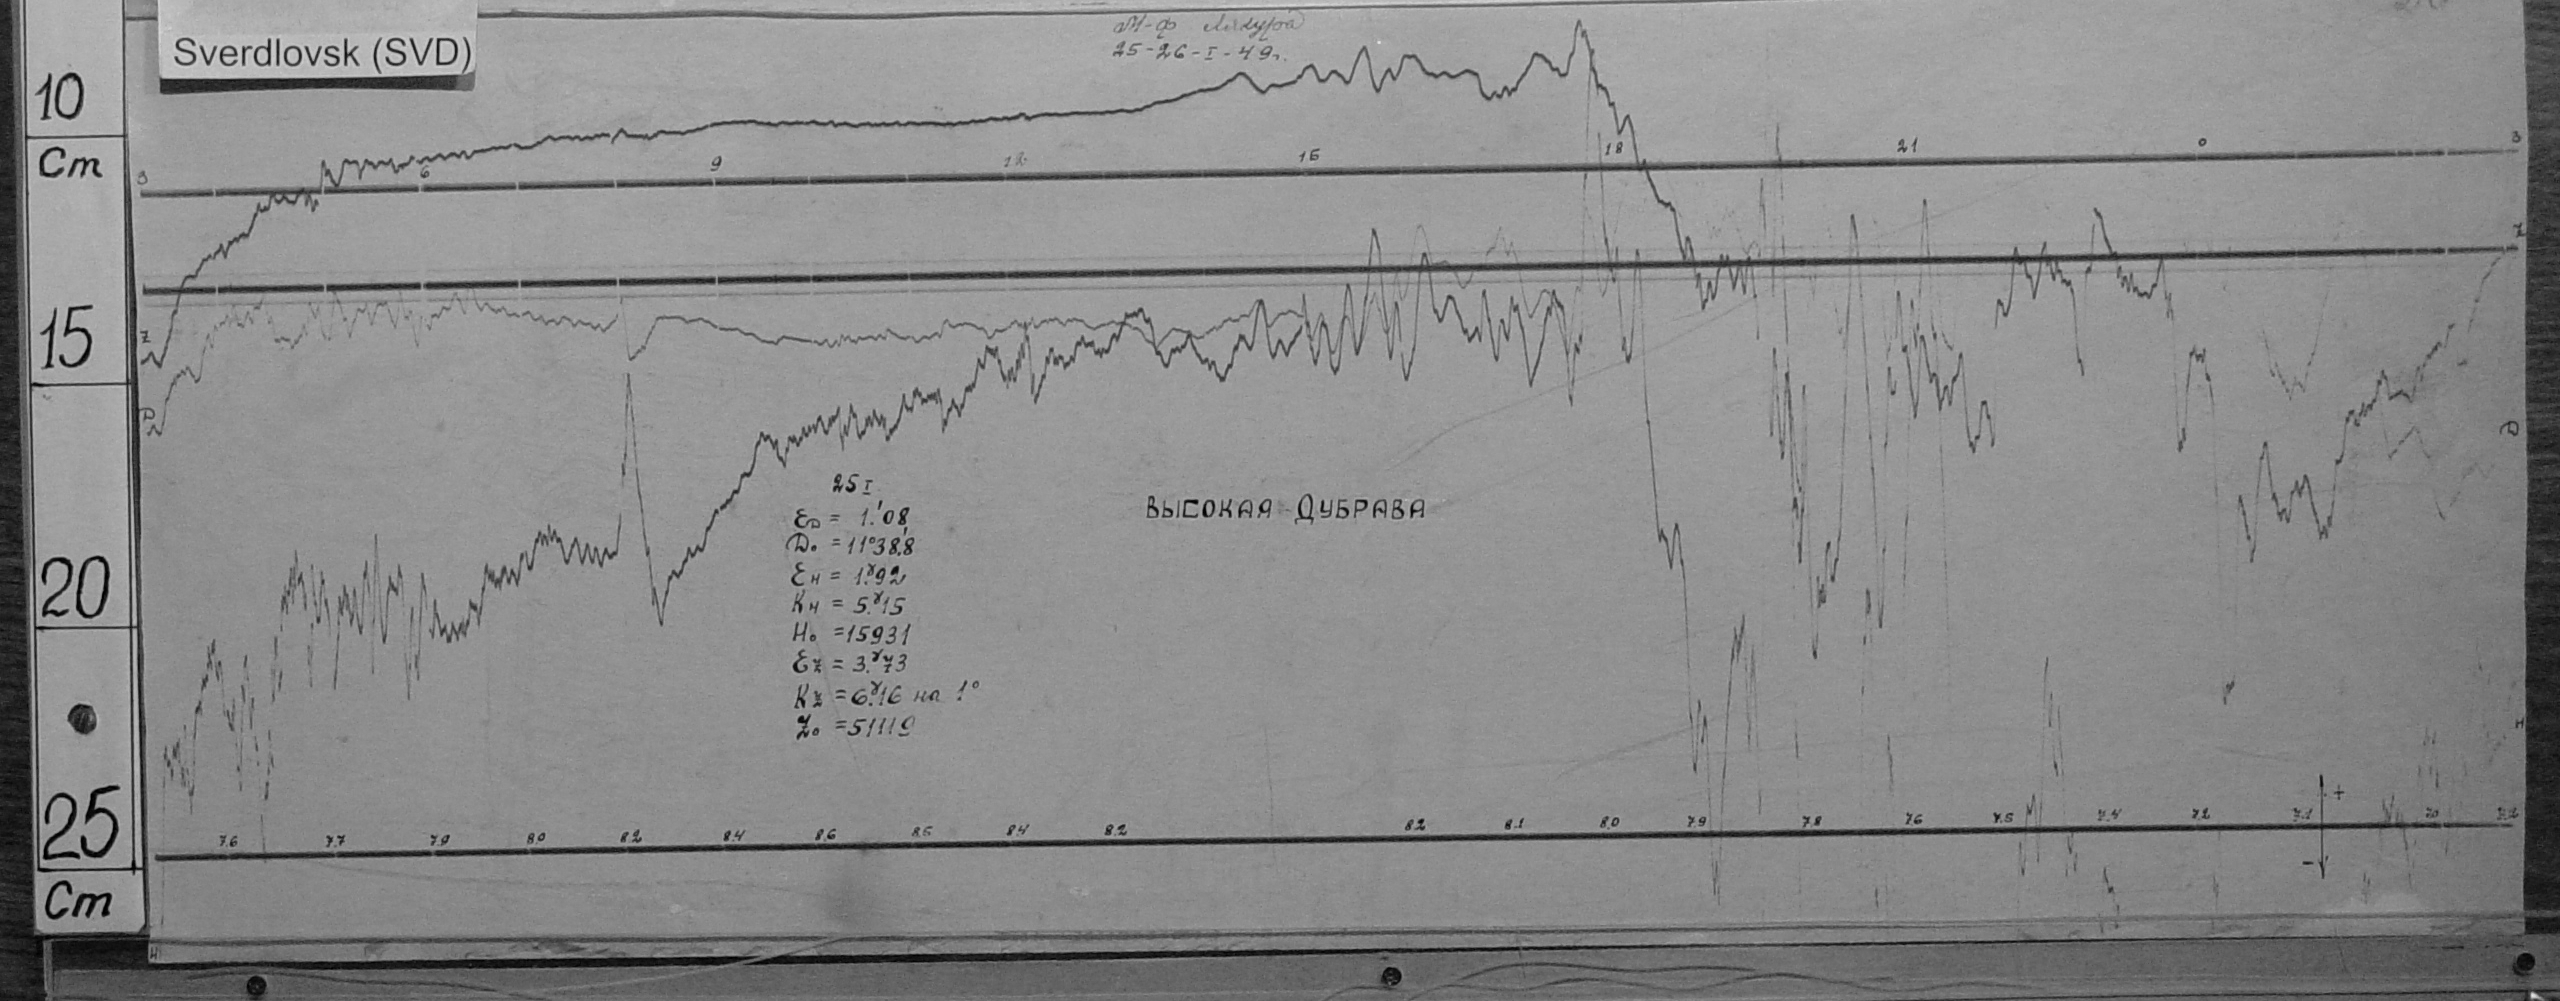 Sverdlovsk (SVD)
25-26-I-49г.
10
Cm
15
20
25
Cm
3 6 9 12 15 18 21 0 3
Z
Z
D
D
25 I
ℰD = 1.'08
D₀ = 11°38.'8
ℰH = 1.ˠ92
KH = 5.ˠ15
H₀ = 15931
ℰZ = 3.ˠ73
KZ = 6.ˠ16 на 1°
Z₀ = 51119
ВЫСОКАЯ ДУБРАВА
H
+
7.6 7.7 7.9 8.0 8.2 8.4 8.6 8.5 8.4 8.2 8.2 8.1 8.0 7.9 7.8 7.6 7.5 7.4 7.2 7.1 7.0 7.2
-
H